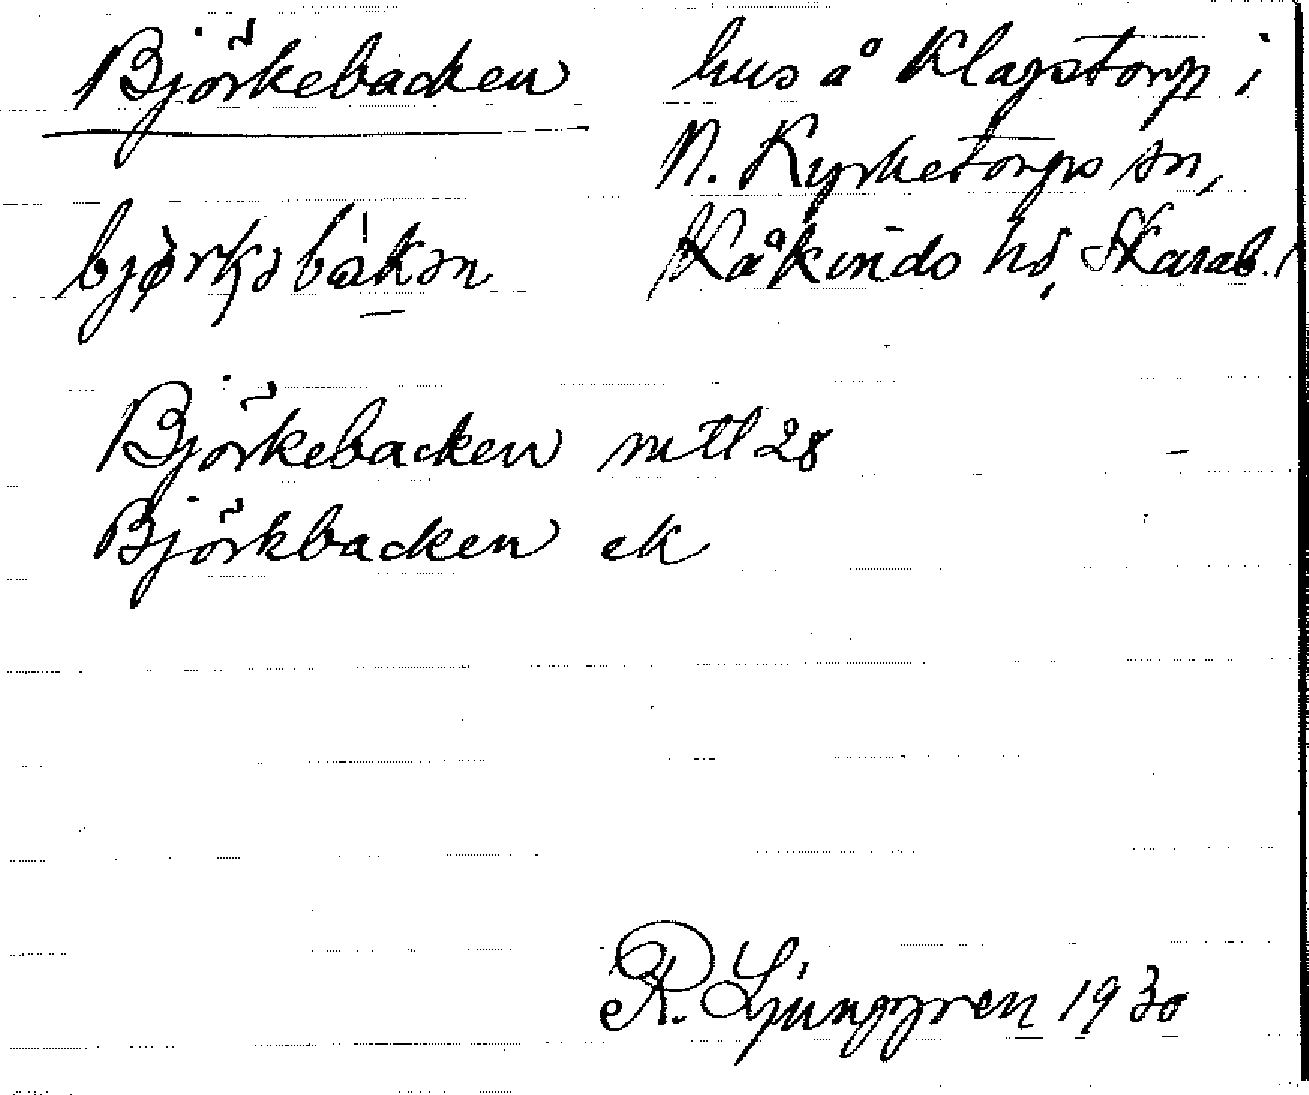 Björkebacken hus å Klagstorp i
N. Kyrketorps sn,
bjørkəbakən Kåkinds hd, Skarab. l
Björkebacken mtl 28
Björkbacken ek
R. Ljunggren 1930